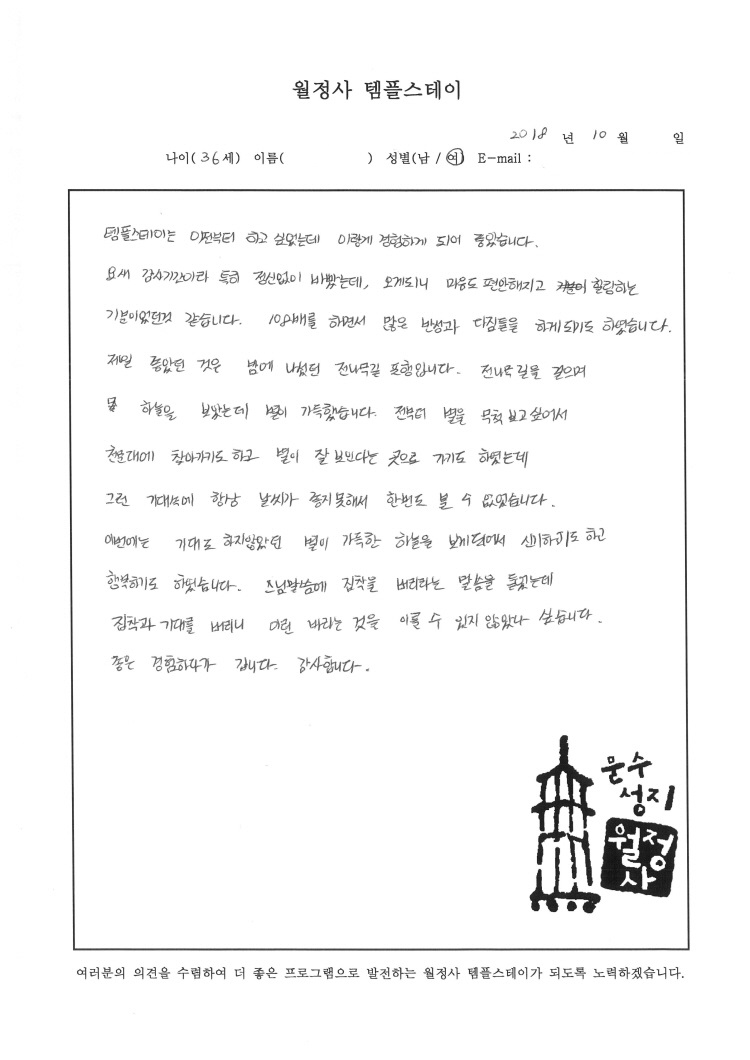 월정사 템플스테이
2018 년 10 월 일
나이( 36 세) 이름( ) 성별(남 / 여) E-mail :
템플스테이는 이전부터 하고 싶었는데 이렇게 경험하게 되어 좋았습니다.
요새 감사기간이라 특히 정신없이 바빴는데, 오게되니 마음도 편안해지고 힐링하는
기분이었던것 같습니다. 108배를 하면서 많은 반성과 다짐들을 하게되기도 하였습니다.
제일 좋았던 것은 밤에 나섰던 전나무길 포행입니다. 전나무길을 걸으며
하늘을 보았는데 별이 가득했습니다. 전부터 별을 무척 보고싶어서
천문대에 찾아가기도 하고 별이 잘 보인다는 곳으로 가기도 하였는데
그런 기대속에 항상 날씨가 좋지못해서 한번도 볼 수 없었습니다.
이번에는 기대도 하지않았던 별이 가득한 하늘을 보게되어서 신기하기도 하고
행복하기도 하였습니다. 스님말씀에 집착을 버리라는 말씀을 들었는데
집착과 기대를 버리니 이런 바라는 것을 이룰 수 있지 않았나 싶습니다.
좋은 경험하다가 갑니다. 감사합니다.
문수
성지
월정
사
여러분의 의견을 수렴하여 더 좋은 프로그램으로 발전하는 월정사 템플스테이가 되도록 노력하겠습니다.